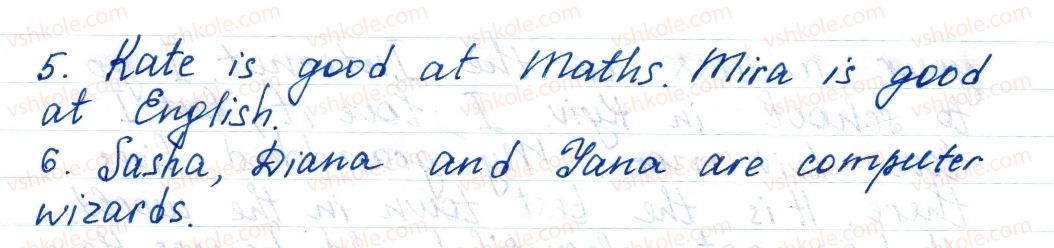 5. Kate is good at Maths. Mira is good
at English.
6. Sasha, Diana and Yana are computer
wizards.